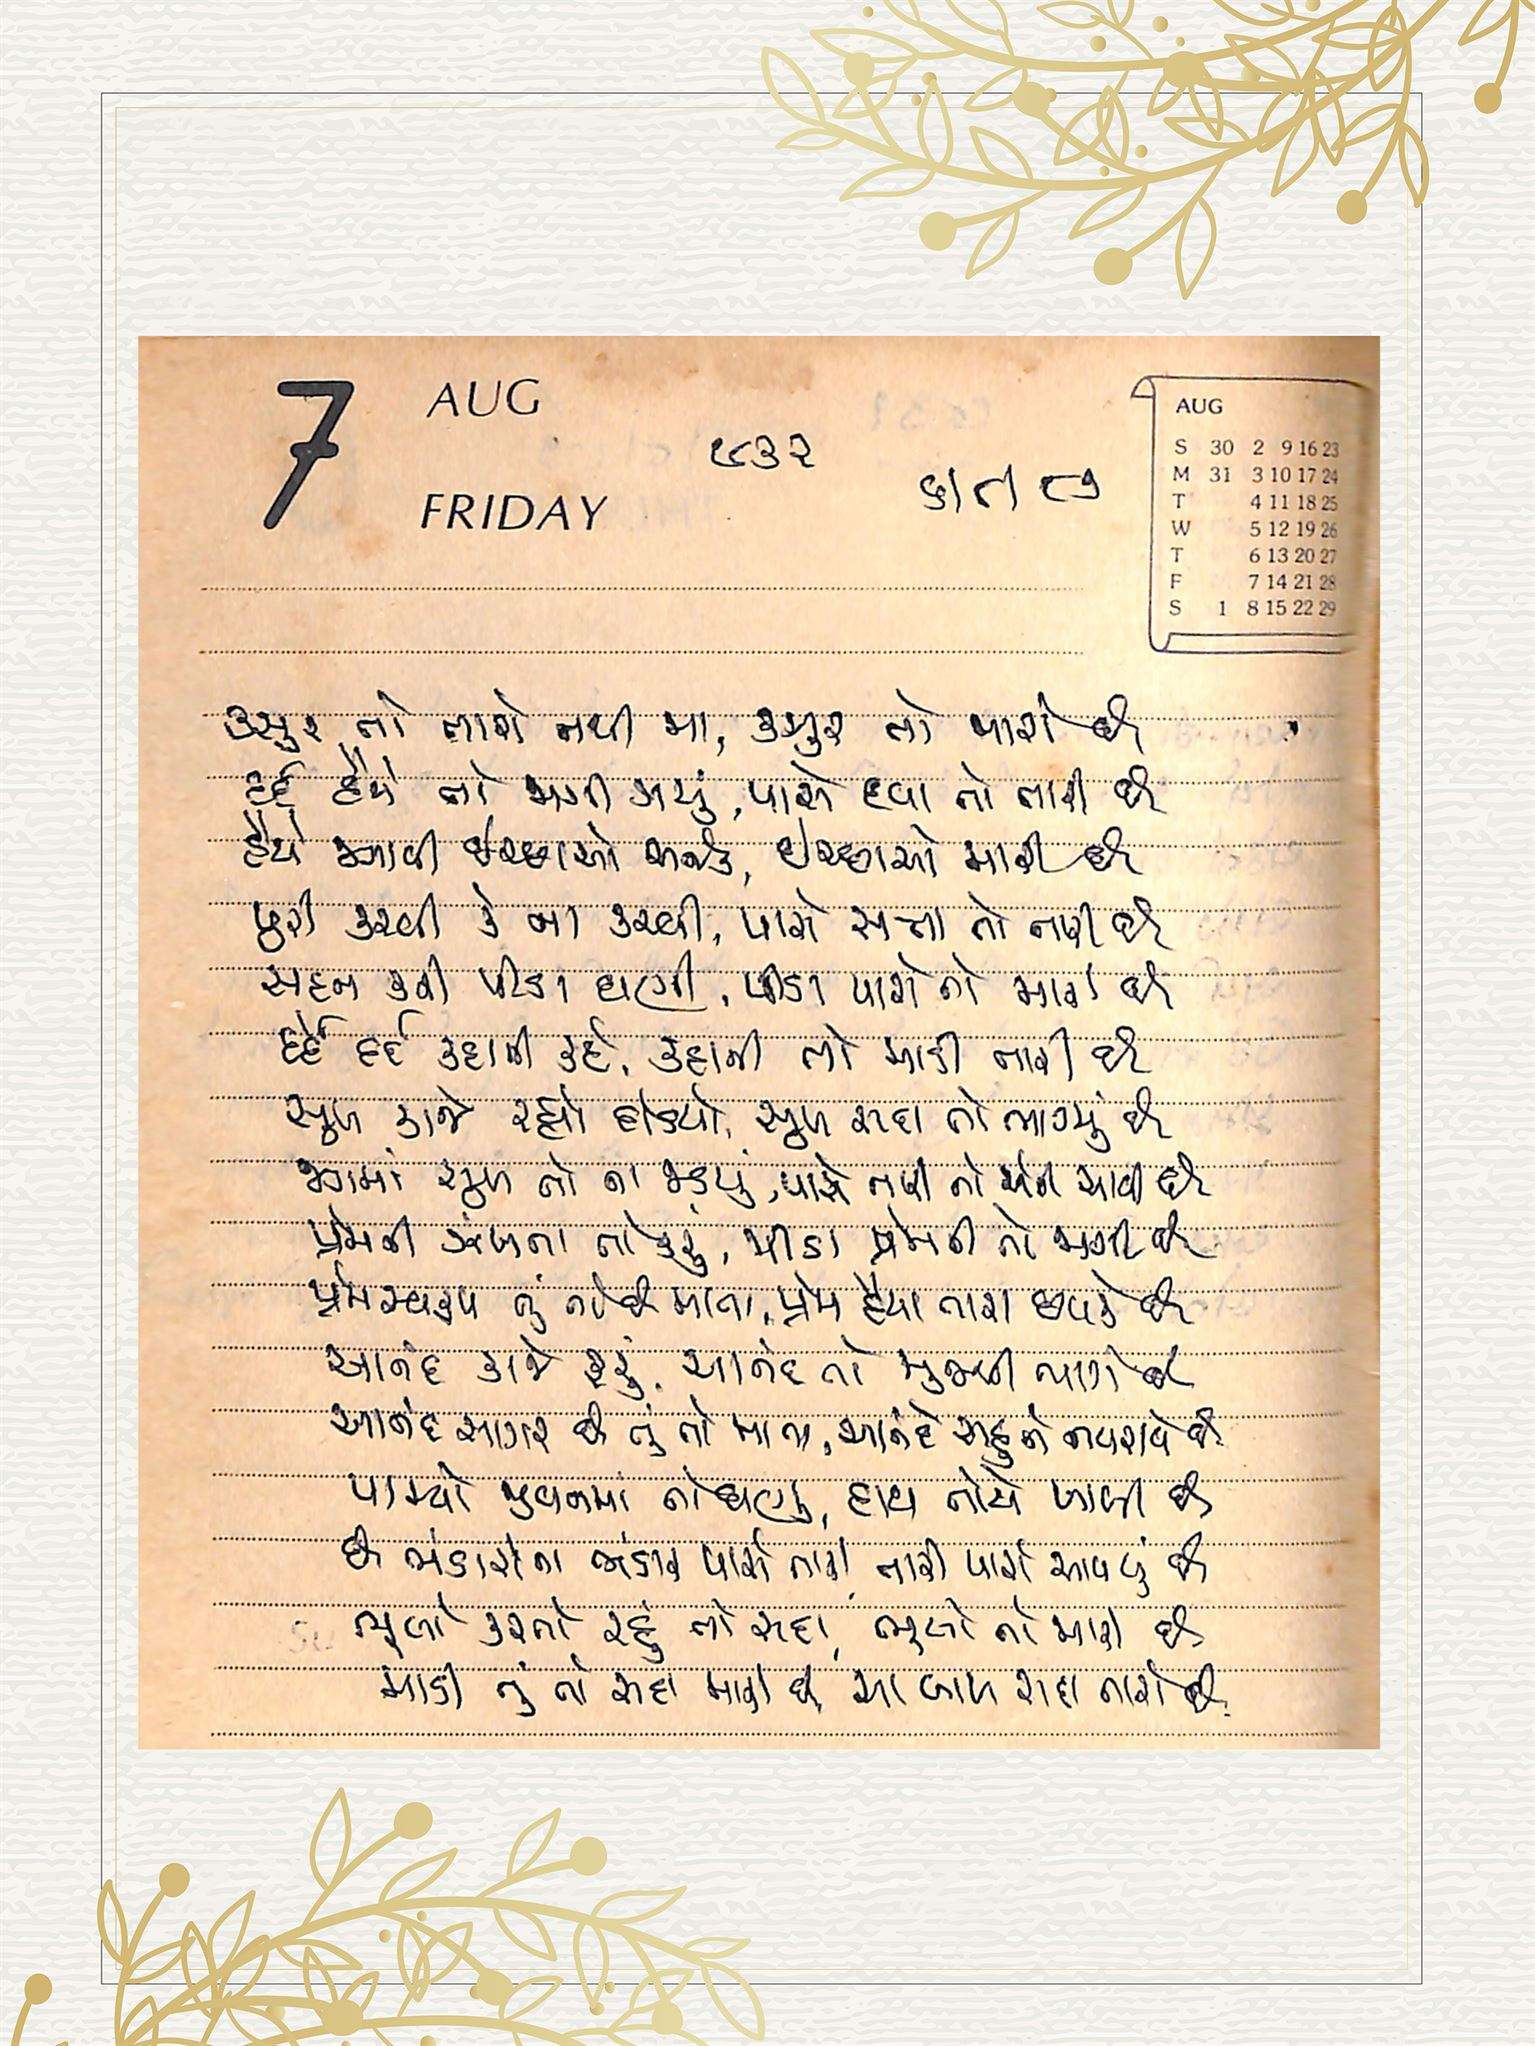 7 AUG
FRIDAY
૧૮૩૨
૬/૮/૮૭
AUG
S 30 2 9 16 23
M 31 3 10 17 24
T 4 11 18 25
W 5 12 19 26
T 6 13 20 27
F 7 14 21 28
S 1 8 15 22 29
કસુર તો તારો નથી મા, કસુર તો મારો છે
દર્દ હૈયે તો જાગી ગયું, પાસે દવા તો તારી છે
હૈયે જાગી ઇચ્છાઓ મારી છે
પુરી કરવી કે ના કરવી, પાસે સત્તા તો તારી છે
સહન કરી પીડા ઘણી, પીડા પાસે તો મારી છે
દર્દે દર્દ કહાની કહે, કહાની તો માડી તારી છે
સુખ કાજે રહ્યો દોડયો, સુખ સદા તો ભાગ્યું છે
જગમાં સુખ તો ના જડયું, પાસે તારી તો એની ચાવી છે
પ્રેમની ઝંખના તો કરું, પીડા પ્રેમની તો જાગી છે
પ્રેમસ્વરૂપ તું તો છે માતા, પ્રેમ હૈયા તારા છલકે છે
આનંદ કાજે ફરું, આનંદ તો મુજથી ભાગે છે
આનંદ સાગર છે તું તો માતા, આનંદે સહુને નવરાવે છે
પામ્યો જીવનમાં તો ઘણું, હાથ તોયે ખાલી છે
છે ભંડારોના ભંડાર પાસે તારી, તારી પાસે આવવું છે
ભૂલો કરતો રહું તો સદા, ભૂલો તો મારી છે
માડી તું તો સદા મારી છે, આ બાળ સદા તારો છે